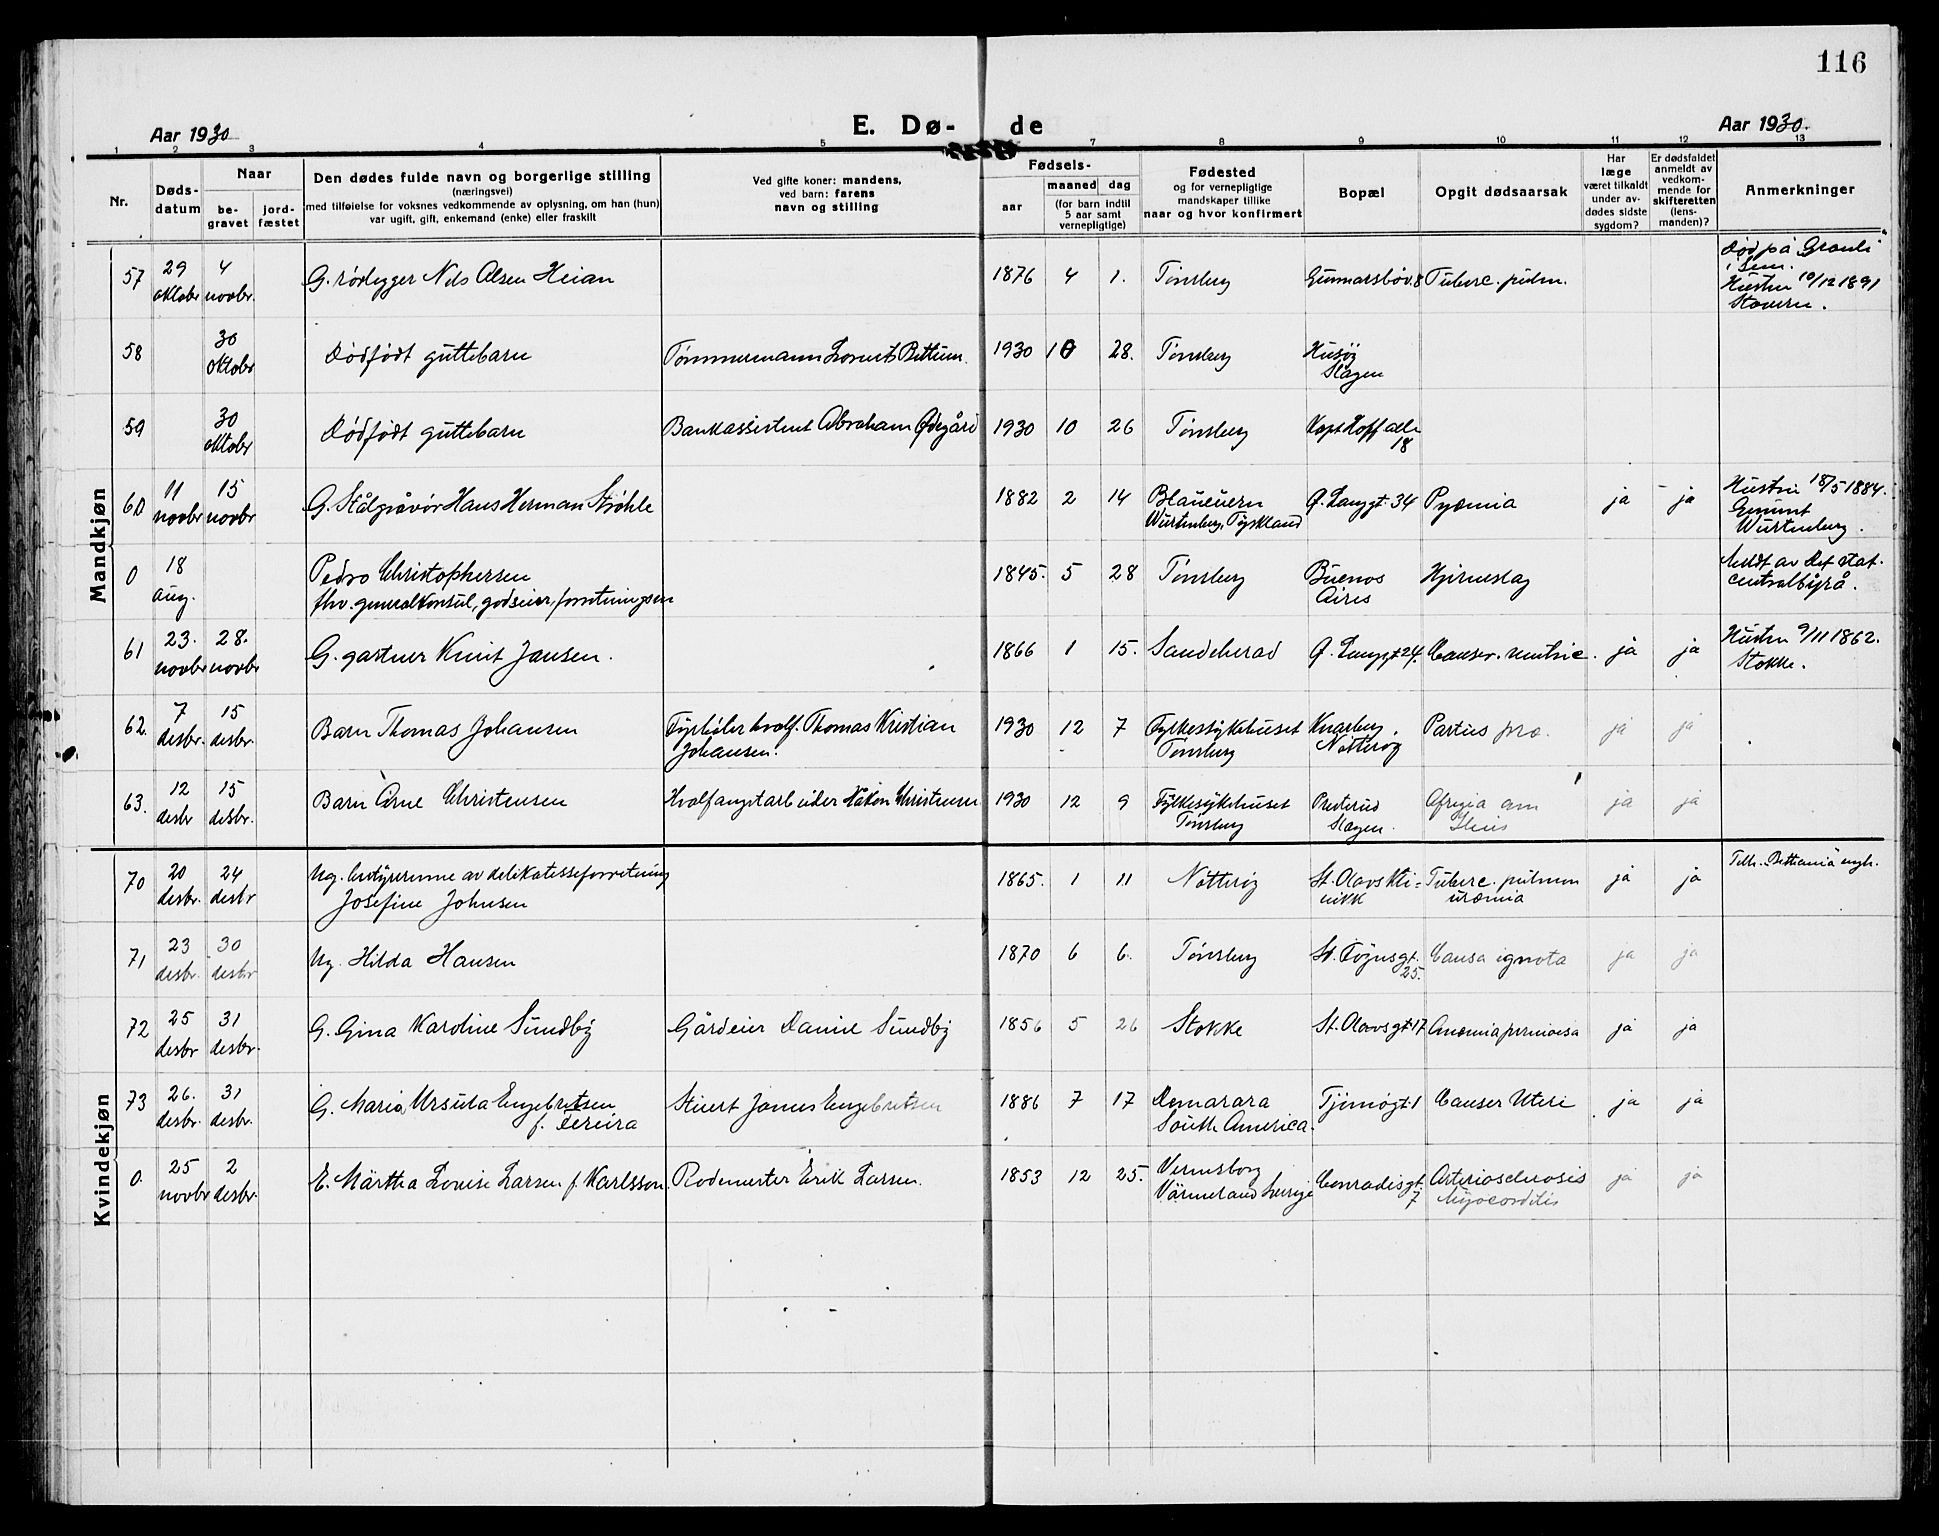 116
Aar 1930
E. Dø- de
Aar 1930.
1 2 3 4 5 7 8 9 10 11 12 13
Nr.
Døds-
datum
Naar
be-
gravet
jord-
fæstet
Den dødes fulde navn og borgerlige stilling
(næringsvei)
med tilføielse for voksnes vedkommende av oplysning, om han (hun)
var ugift, gift, enkemand (enke) eller fraskilt
Ved gifte koner: mandens,
ved barn: farens
navn og stilling
Fødsels-
aar
maaned
dag
(for barn indtil
5 aar samt
vernepligtige)
Fødested
og for vernepligtige
mandskaper tillike
naar og hvor konfirmert
Bopæl
Opgit dødsaarsak
Har
læge
været tilkaldt
under av-
dødes sidste
sygdom?
Er dødsfaldet
anmeldt av
vedkom-
mende for
skifteretten
(lens-
manden)?
Anmerkninger
Mandkjøn
57 29 oktobr 4 novbr. G. rørlegger Nils Olsen Heian 1876 4 1. Tønsberg Gunnarsbøv. 8 Tuberc. pulm. Død på Grønli
i Sem.
Hustru 10/12 1891
Stavern.
58 30 oktobr Dødfødt guttebarn Tømmermann Lorents Bettum. 1930 10 28. Tønsberg Husøy
Slagen
59 30 oktobr Dødfødt guttebarn Bankassistent Abraham Ødegård 1930 10 26 Tønsberg Kapt Hoff alle
18
60 11 novbr 15 novbr G. Stålgravør Hans Herman Strøhle 1882 2 14 Blaueuern
Würtenberg, Tyskland Ø. Langgt. 34 Pyæmia ja ja Hustru 18/5 1884.
Gmünt
Würtenberg.
0 18 aug. Pedro Christophersen
fhv. generalkonsul, godseier, forretningsm 1845. 5 28 Tønsberg Buenos
Aires Hjerneslag Meldt av Det stat.
centralbyrå.
61 23. novbr 28. novbr G. gartner Knut Jansen. 1866 1 15. Sandeherad Ø. Langgt 24. Cancer. ventric. ja ja Hustru 9/11 1862.
Stokke.
62. 7 desbr. 15 desbr. Barn Thomas Johansen Fyrbøter hvalf. Thomas Kristian
Johansen. 1930 12 7 Fylkessykehuset
Tønsberg Knarberg,
Nøtterøy Partus præ. ja ja
63. 12 desbr 15 desbr. Barn Arne Christensen Hvalfangstarbeider Håkon Christensen 1930 12 9 Fylkessykehuset
Tønsberg Presterud
Slagen. ja ja
Kvindekjøn
70 20 desbr. 24 desbr Ug. bestyrerinne av delikatesseforretning
Josefine Johnsen 1865. 1 11 Nøtterøy St. Olavs Kli=
nikk Tuberc. pulmon
uræmia ja ja Tilh. Bethania mgh.
71 23 desbr. 30 desbr Ug. Hilda Hansen 1870 6 6. Tønsberg St. Føyusgt.
25. Causa ignota ja ja
72 25 desbr 31 desbr. G. Gina Karoline Sundby Gårdeier Daniel Sundby 1856 5 26 Stokke St. Olavsgt. 17 Anæmia perniciosa ja ja
73 26. desbr. 31 desbr. G. Maria Ursula Engebretsen
f. Fereira Stuert James Engebretsen 1886 7 17 Demarara
South America. Tjømøgt. 1 Cancer Uteri ja ja
0. 25 novbr 2 desbr. E. Märtha Lovise Larsen f. Karlsson. Rodemester Erik Larsen. 1853 12 25. Vermsborg
Värmeland Sverige Conradisgt.
7 Arteriosclerosis
Myocarditis ja ja